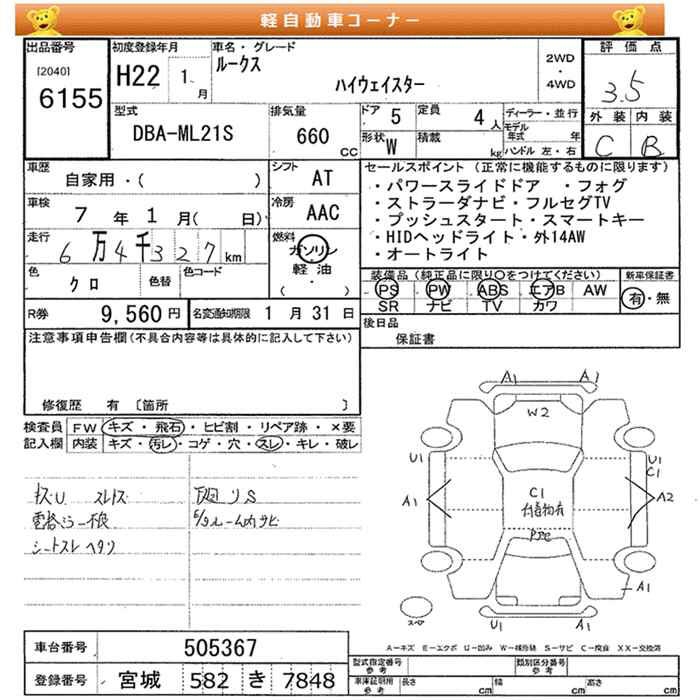 軽自動車コーナー
出品番号
[2040]
6155
初度登録年月
H22 1 月
車名・グレード
ルークス
ハイウェイスター
2WD
・
4WD
評価点
3.5
外装 内装
C B
型式
DBA-ML21S
排気量
660 CC
ドア 5
定員 4 人
形状 W
積載 kg
ディーラー・並行
モデル年式 年
ハンドル 左・右
車歴
自家用・( )
シフト AT
車検
7 年 1 月( 日)
冷房 AAC
走行
6万4千327 km
燃料
ガソリン
軽油
( ・ )
色 クロ
色替
色コード
セールスポイント (正常に機能するものに限ります)
・パワースライドドア ・フォグ
・ストラーダナビ・フルセグTV
・プッシュスタート・スマートキー
・HIDヘッドライト・外14AW
・オートライト
装備品(純正品に限り○をつけてください)
PS PW ABS エアB AW
SR ナビ TV カワ
新車保証書
有・無
R券 9,560 円
名変通知期限 1 月 31 日
後日品
保証書
注意事項申告欄(不具合内容等は具体的に記入して下さい)
修復歴 有 〔箇所 〕
検査員記入欄
FW キズ・飛石・ヒビ割・リペア跡・×要
内装 キズ・汚レ・コゲ・穴・スレ・キレ・破レ
シートスレ ヘタリ
A1 A1
W2
U1 U1
C1
A1 A2
C1
A1
U1 A1
スペア
A=キズ E=エクボ U=凹み W=補修跡 S=サビ C=腐食 XX=交換済
車台番号 505367
登録番号 宮城 582 き 7848
型式指定番号
参考
類別区分番号
参考
車庫証明用
参考
長さ cm
幅 cm
高さ cm